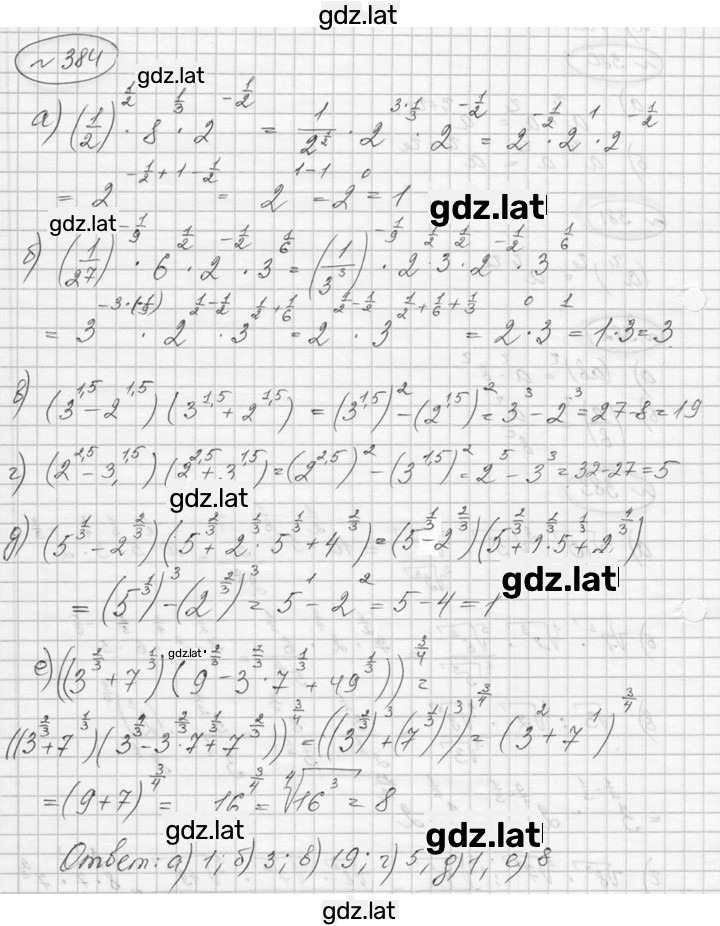 gdz.lat
№ 384
gdz.lat
а) (1/2)^(1/2) · 8^(1/3) · 2^(-1/2) = 1/2^(1/2) · 2^(3·1/3) · 2^(-1/2) = 2^(-1/2) · 2^1 · 2^(-1/2)
= 2^(-1/2+1-1/2) = 2^(1-1) = 2^0 = 1
gdz.lat
gdz.lat
б) (1/27)^(-1/9) · 6^(1/2) · 2^(-1/2) · 3^(1/6) = (1/3^3)^(-1/9) · 2^(1/2) · 3^(1/2) · 2^(-1/2) · 3^(1/6)
= 3^(-3·(-1/9)) · 2^(1/2-1/2) · 3^(1/2+1/6) = 2^(1/2-1/2) · 3^(1/2+1/6+1/3) = 2^0 · 3^1 = 1·3 = 3
в) (3^1,5 - 2^1,5)(3^1,5 + 2^1,5) = (3^1,5)^2 - (2^1,5)^2 = 3^3 - 2^3 = 27-8 = 19
г) (2^2,5 - 3^1,5)(2^2,5 + 3^1,5) = (2^2,5)^2 - (3^1,5)^2 = 2^5 - 3^3 = 32-27 = 5
gdz.lat
д) (5^(1/3) - 2^(2/3))(5^(2/3) + 2^(2/3) · 5^(1/3) + 4^(2/3)) = (5^(1/3) - 2^(2/3))(5^(2/3) +
gdz.lat
= (5^(1/3))^3 - (2^(2/3))^3 = 5^1 - 2^2 = 5-4 = 1
е) ((3^(2/3) + 7^(1/3))(9^(2/3) - 3^(2/3) · 7^(1/3) + 49^(1/3)))^(3/4) =
gdz.lat
((3^(2/3) + 7^(1/3))(3^(4/3) - 3^(2/3) · 7^(1/3) + 7^(2/3)))^(3/4) = ((3^(2/3))^3 + (7^(1/3))^3)^(3/4) = (3^2 + 7^1)^(3/4)
= (9+7)^(3/4) = 16^(3/4) = ⁴√16^3 = 8
gdz.lat
gdz.lat
Ответ: а) 1; б) 3; в) 19; г) 5, д) 1; е) 8
gdz.lat